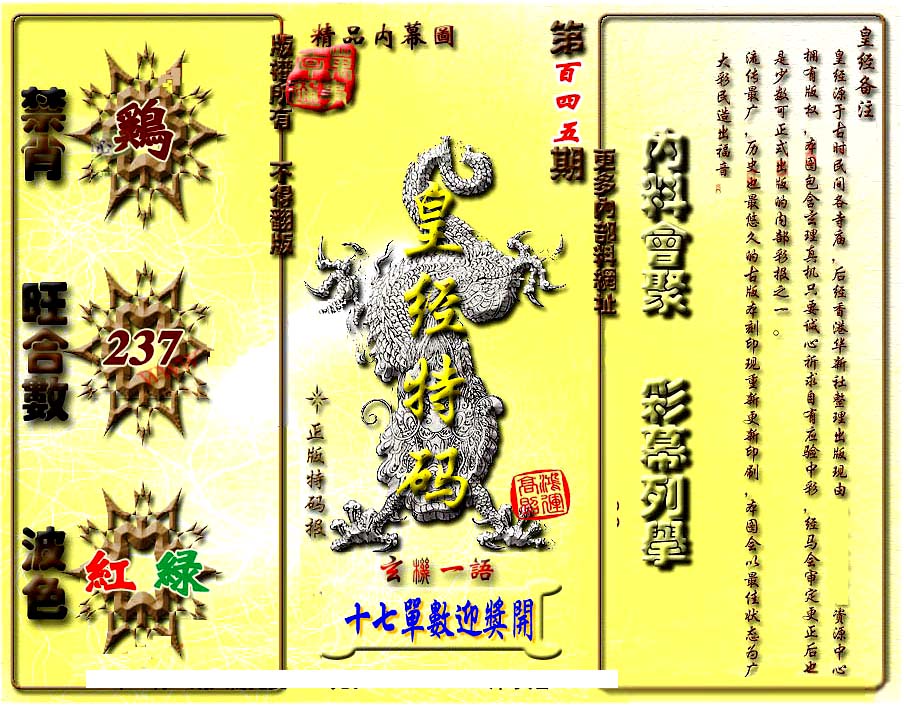 精品內幕圖
第百四五期
版權所有 不得翻版
禁肖
鷄
旺合數
237
波色
紅 綠
皇经特码
正版特码报
鴻運高照
玄機一語
十七單數迎獎開
更多內部料網址
內料會聚
彩幕列舉
皇经备注
皇经源于古时民间各寺庙，后经香港华新社整理出版现由 资源中心
拥有版权，本图包含玄理真机只要诚心祈求自有应验中彩，经马会审定更正后也
是少数可正式出版的内部彩报之一。
流传最广，历史也最悠久的古版本刻印现重新更新印刷，本图会以最佳状态为广
大彩民造出福音